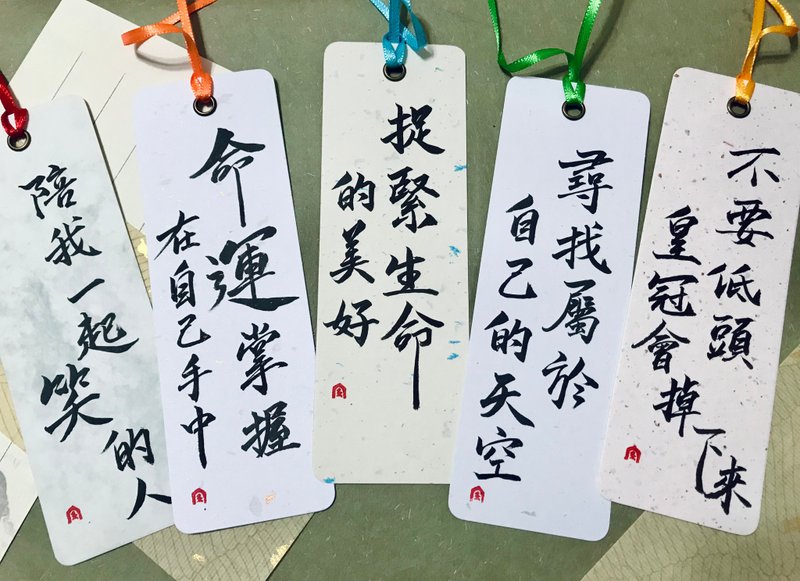 陪我一起笑
的人
命運掌握
在自己手中
捉緊生命
的美好
尋找屬於
自己的天空
不要低頭
皇冠會掉下來